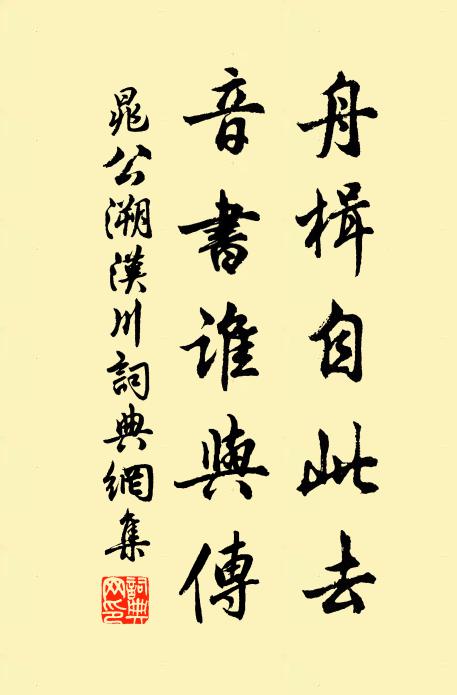 舟楫自此去
音書誰與傳
晁公溯漢川詞典網集
詞典網印